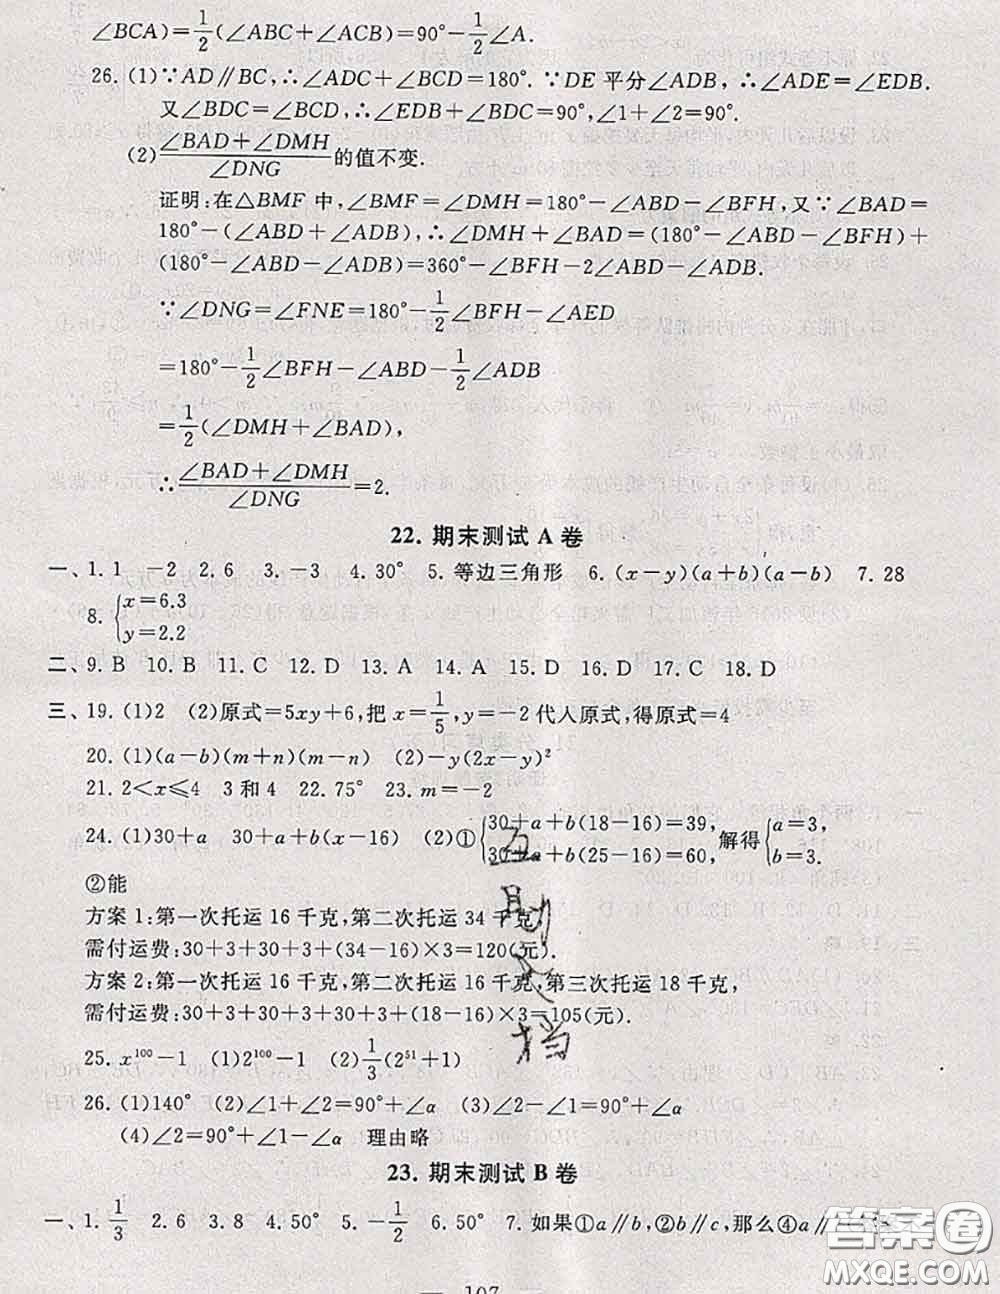 ∠BCA)=1/2(∠ABC+∠ACB)=90°-1/2∠A.
26. (1)∵AD∥BC,∴∠ADC+∠BCD=180°. ∵DE 平分∠ADB,∴∠ADE=∠EDB.
又∠BDC=∠BCD,∴∠EDB+∠BDC=90°,∠1+∠2=90°.
(2)(∠BAD+∠DMH)/∠DNG的值不变.
证明:在△BMF 中,∠BMF=∠DMH=180°-∠ABD-∠BFH,又∵∠BAD=
180°-(∠ABD+∠ADB),∴∠DMH+∠BAD=(180°-∠ABD-∠BFH)+
(180°-∠ABD-∠ADB)=360°-∠BFH-2∠ABD-∠ADB.
∵∠DNG=∠FNE=180°-1/2∠BFH-∠AED
=180°-1/2∠BFH-∠ABD-1/2∠ADB
=1/2(∠DMH+∠BAD),
∴(∠BAD+∠DMH)/∠DNG=2.
22. 期末测试 A 卷
一、1. 1 -2 2. 6 3. -3 4. 30° 5. 等边三角形 6. (x-y)(a+b)(a-b) 7. 28
8. {x=6.3
y=2.2
二、9. B 10. B 11. C 12. D 13. A 14. A 15. D 16. D 17. C 18. D
三、19. (1)2 (2)原式=5xy+6,把 x=1/5,y=-2代人原式,得原式=4
20. (1)(a-b)(m+n)(m-n) (2)-y(2x-y)²
21. 2<x≤4 3 和 4 22. 75° 23. m=-2
24. (1)30+a 30+a+b(x-16) (2)①{30+a+b(18-16)=39, 30+a+b(25-16)=60, 解得{a=3, b=3.
②能
方案 1:第一次托运 16 千克,第二次托运 34 千克,
需付运费:30+3+30+3+(34-16)×3=120(元).
方案 2:第一次托运 16 千克,第二次托运 16 千克,第三次托运 18 千克,
需付运费:30+3+30+3+30+3+(18-16)×3=105(元).
25. x¹⁰⁰-1 (1)2¹⁰⁰-1 (2)1/3(2⁵¹+1)
26. (1)140° (2)∠1+∠2=90°+∠α (3)∠2-∠1=90°+∠α
(4)∠2=90°+∠1-∠α 理由略
23. 期末测试 B 卷
一、1. 1/3 2. 6 3. 8 4. 50° 5. -1/2 6. 50° 7. 如果①a∥b,②b∥c,那么④a∥
答案圈
MXQE.COM
— 107